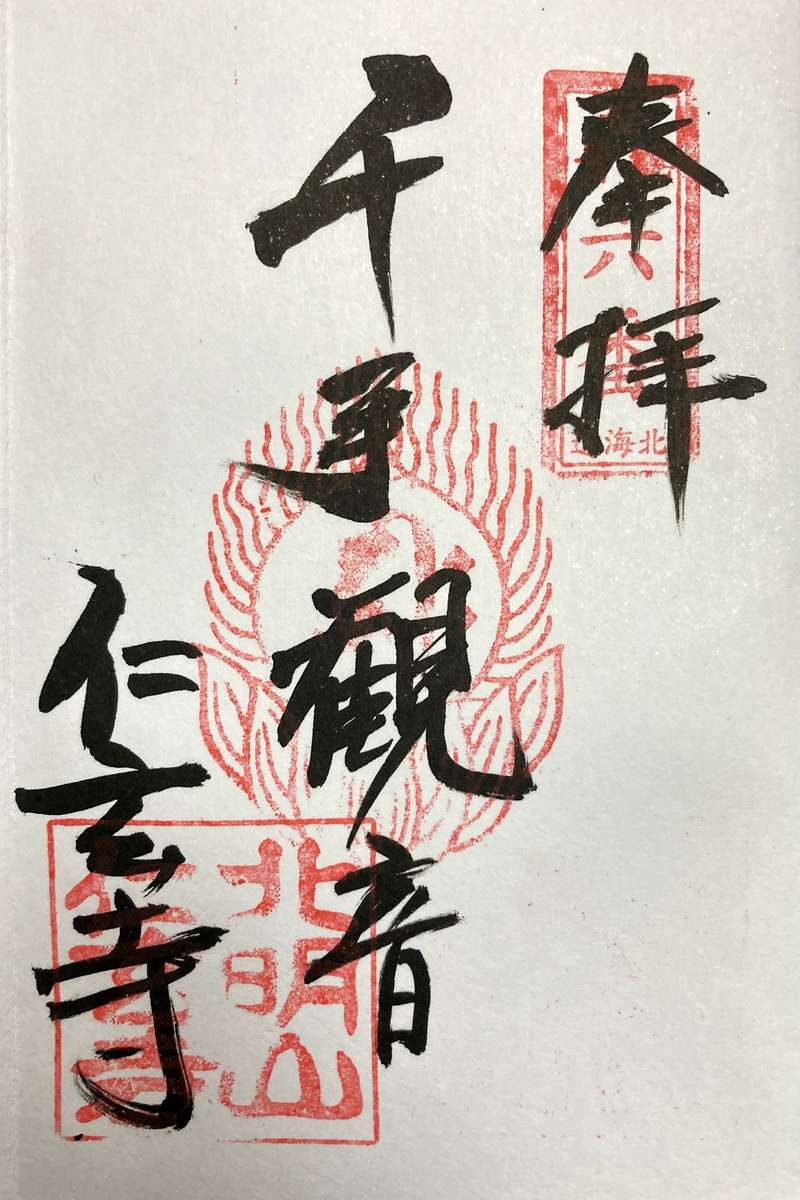 奉拝
六
北海道
千手観音
仁玄寺
北明山